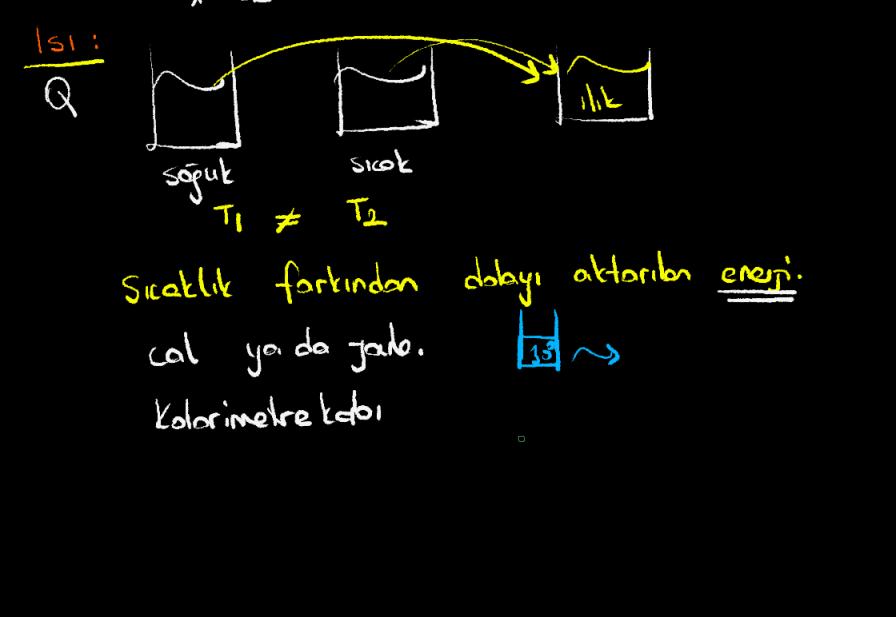 Isı:
Q
ılık
soğuk sıcak
T1 ≠ T2
Sıcaklık farkından dolayı aktarılan enerji.
cal ya da joule.
Kalorimetre kabı